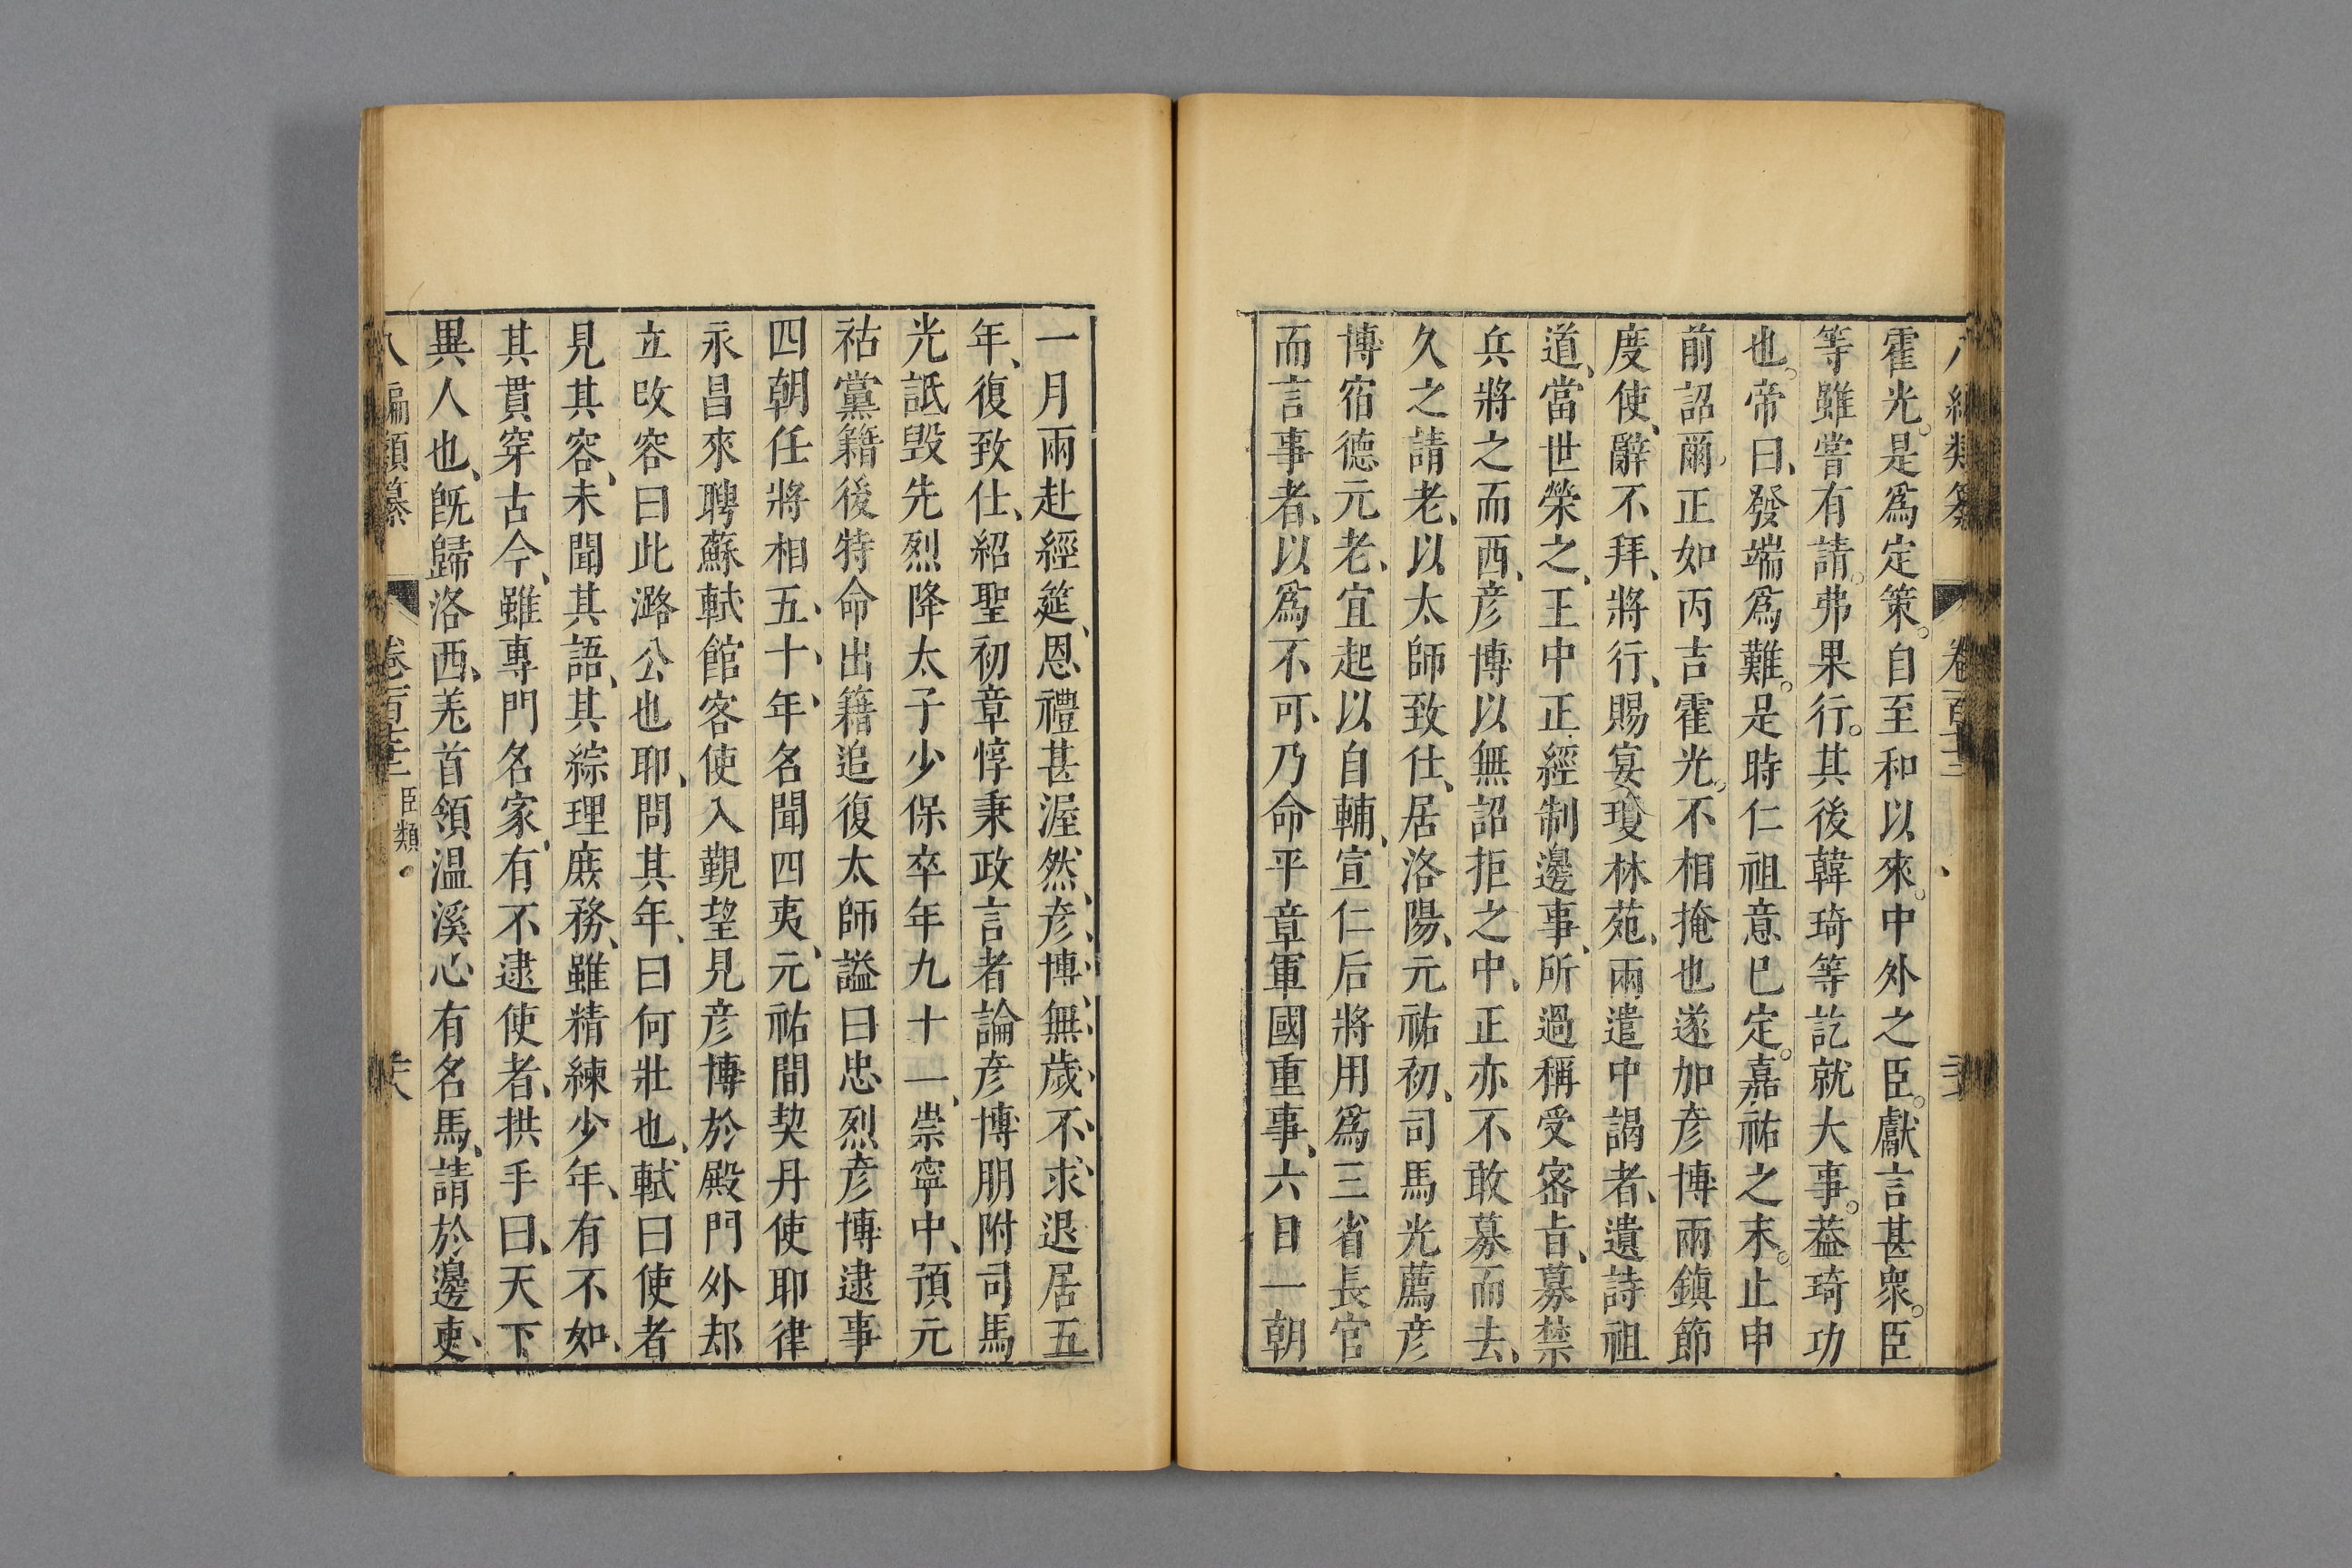 霍光。是爲定策。自至和以來。中外之臣。獻言甚衆。臣
等雖嘗有請。弗果行。其後韓琦等訖就大事。葢琦功
也。帝曰、發端爲難。是時仁祖意已定。嘉祐之末。止申
前詔爾。正如丙吉霍光。不相掩也遂加彥博兩鎮節
度使、辭不拜、將行、賜宴瓊林苑、兩遣中謁者、遺詩祖
道、當世榮之、王中正經制邊事、所過稱受密旨、募禁
兵將之而西、彥博以無詔拒之中、正亦不敢募而去、
久之請老、以太師致仕、居洛陽、元祐初、司馬光薦彥
博宿德元老、宜起以自輔、宣仁后將用爲三省長官
而言事者、以爲不可、乃命平章軍國重事、六日一朝
一月兩赴經筵、恩禮甚渥然、彥、博、無、歲、不、求、退居五
年、復致仕、紹聖初章惇秉政言者論彥博朋附司馬
光詆毀先烈降太子少保卒年九十一、崇寧中、預元
祐黨籍後特命出籍追復太師謚曰忠烈彥博逮事
四朝任將相五、十、年、名聞四夷、元祐間契丹使耶律
永昌來聘蘇軾館客使入覲望見彥博於殿門外却
立改容曰此潞公也耶、問其年、曰何壯也、軾曰使者
見其容、未聞其語、其綜理庶務、雖精練少年、有不如、
其貫穿古今、雖專門名家、有不逮使者、拱手曰、天下
異人也、旣歸洛西、羌首領溫溪心有名馬、請於邊吏、
八編類纂
卷百十三
臣類